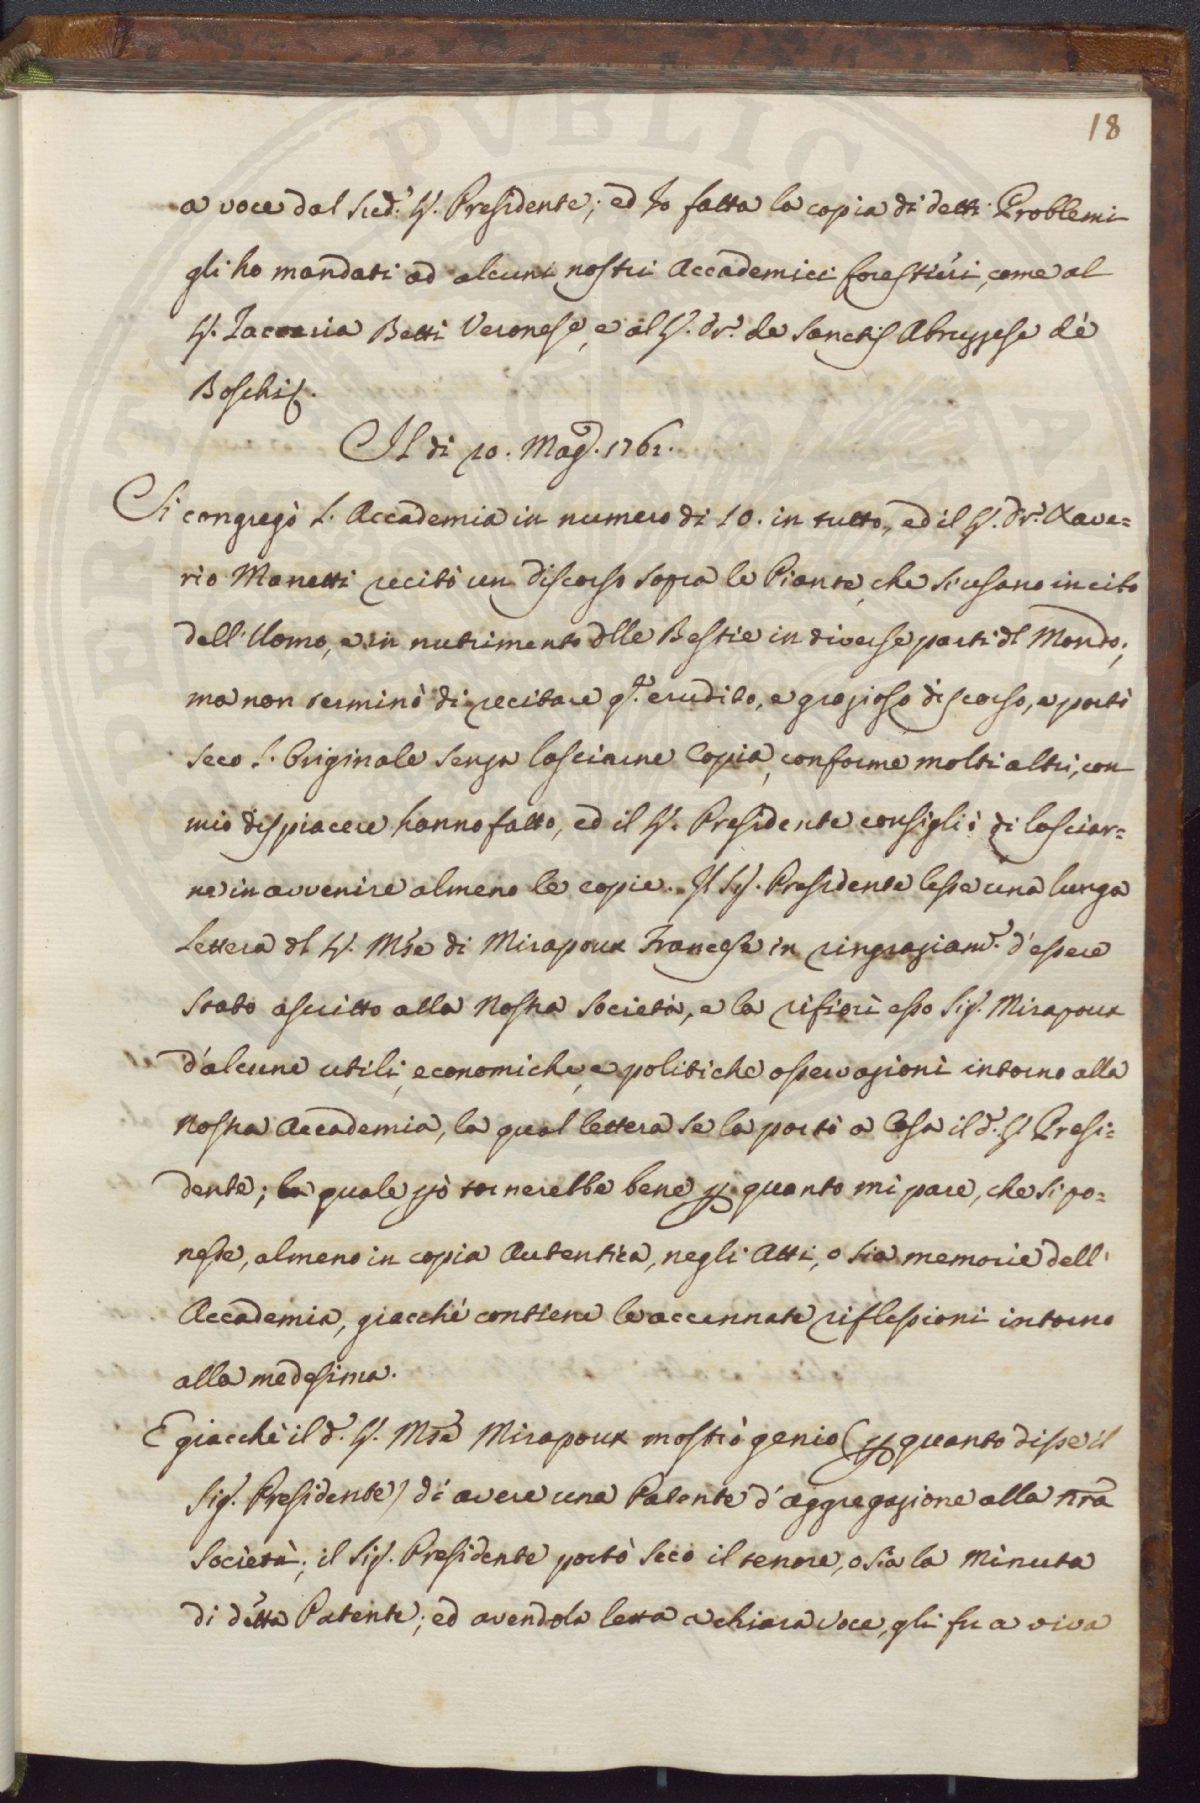 18
a voce dal sud.º Sig. Presidente; ed Io fatta la copia di detti Problemi
gli ho mandati ad alcuni nostri Accademici forestieri, come al
Sig. Zaccaria Betti Veronese, e al Sig. Dr. de Sanctis Abruzzese de
Boschis.
Il di 20. Mag. 1761.
Si congregò l'Accademia in numero di 10. in tutto, ed il Sig. Dr. Xave=
rio Manetti recitò un discorso sopra le Piante, che si usano in cibo
dell'Uomo, e in nutrimento dlle Bestie in diverse parti dl Mondo;
ma non terminò di recitare qto. erudito, e grazioso discorso, e portò
seco l'Originale senza lasciarne Copia, conforme molti altri, con
mio dispiacere hanno fatto, ed il Sig. Presidente consigliò di lasciar=
ne in avvenire almeno le copie. Il Sig. Presidente lesse una lunga
Lettera dl Sig. Mse di Mirapoux Francese in ringraziamº. d'essere
stato ascritto alla Nostra Società, e la rifiorì esso Sig. Mirapoux
d'alcune utili, economiche, e politiche osservazioni intorno alla
Nostra Accademia, la qual lettera se la portò a Casa il dº. Sig. Presi=
dente; la quale però tornerebbe bene p quanto mi pare, che si po=
nesse, almeno in copia Autentica, negli Atti, o sia memorie dell'
Accademia, giacchè contiene le accennate riflessioni intorno
alla medesima.
E giacchè il dº. Sig. Mse Mirapoux mostrò genio (p quanto disse il
Sig. Presidente) di avere una Patente d'aggregazione alla nra
Società; il Sig. Presidente portò seco il tenore, o sia la Minuta
di detta Patente; ed avendola letta a chiara voce, gli fu a viva